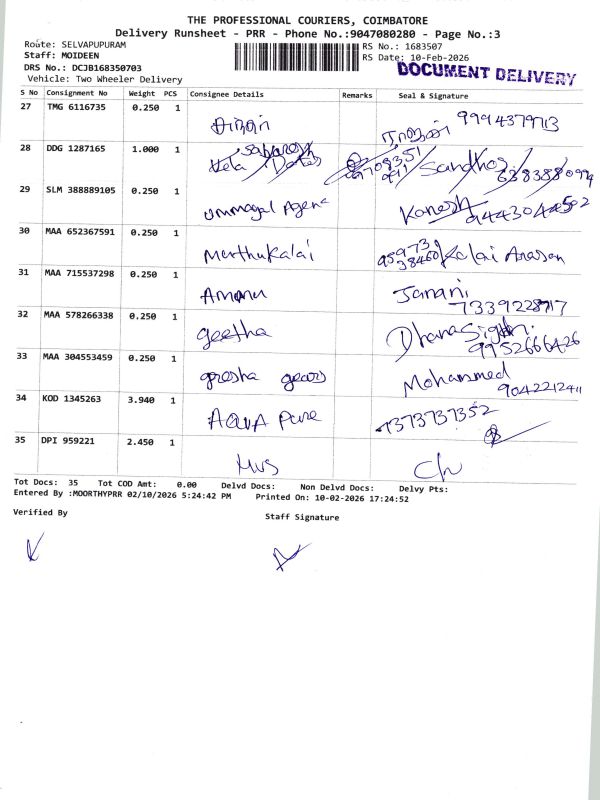 THE PROFESSIONAL COURIERS, COIMBATORE
Delivery Runsheet - PRR - Phone No.:9047080280 - Page No.:3
Route: SELVAPUPURAM
RS No.: 1683507
Staff: MOIDEEN
RS Date: 10-Feb-2026
DOCUMENT DELIVERY
DRS No.: DCJB168350703
Vehicle: Two Wheeler Delivery
S No Consignment No Weight PCS Consignee Details Remarks Seal & Signature
27 TMG 6116735 0.250 1 9994379713
28 DDG 1287165 1.000 1
29 SLM 388889105 0.250 1 Ummagal Agene Kanesh 9443044502
30 MAA 652367591 0.250 1 Muthukalai Kalai Arasan
31 MAA 715537298 0.250 1 Amanu Janani
32 MAA 578266338 0.250 1 geetha 9952666426
33 MAA 304553459 0.250 1 gears Mohammed 9042212411
34 KOD 1345263 3.940 1 AQUA Pure 7373737352
35 DPI 959221 2.450 1
Tot Docs: 35 Tot COD Amt: 0.00 Delvd Docs: Non Delvd Docs: Delvy Pts:
Entered By :MOORTHYPRR 02/10/2026 5:24:42 PM Printed On: 10-02-2026 17:24:52
Verified By
Staff Signature